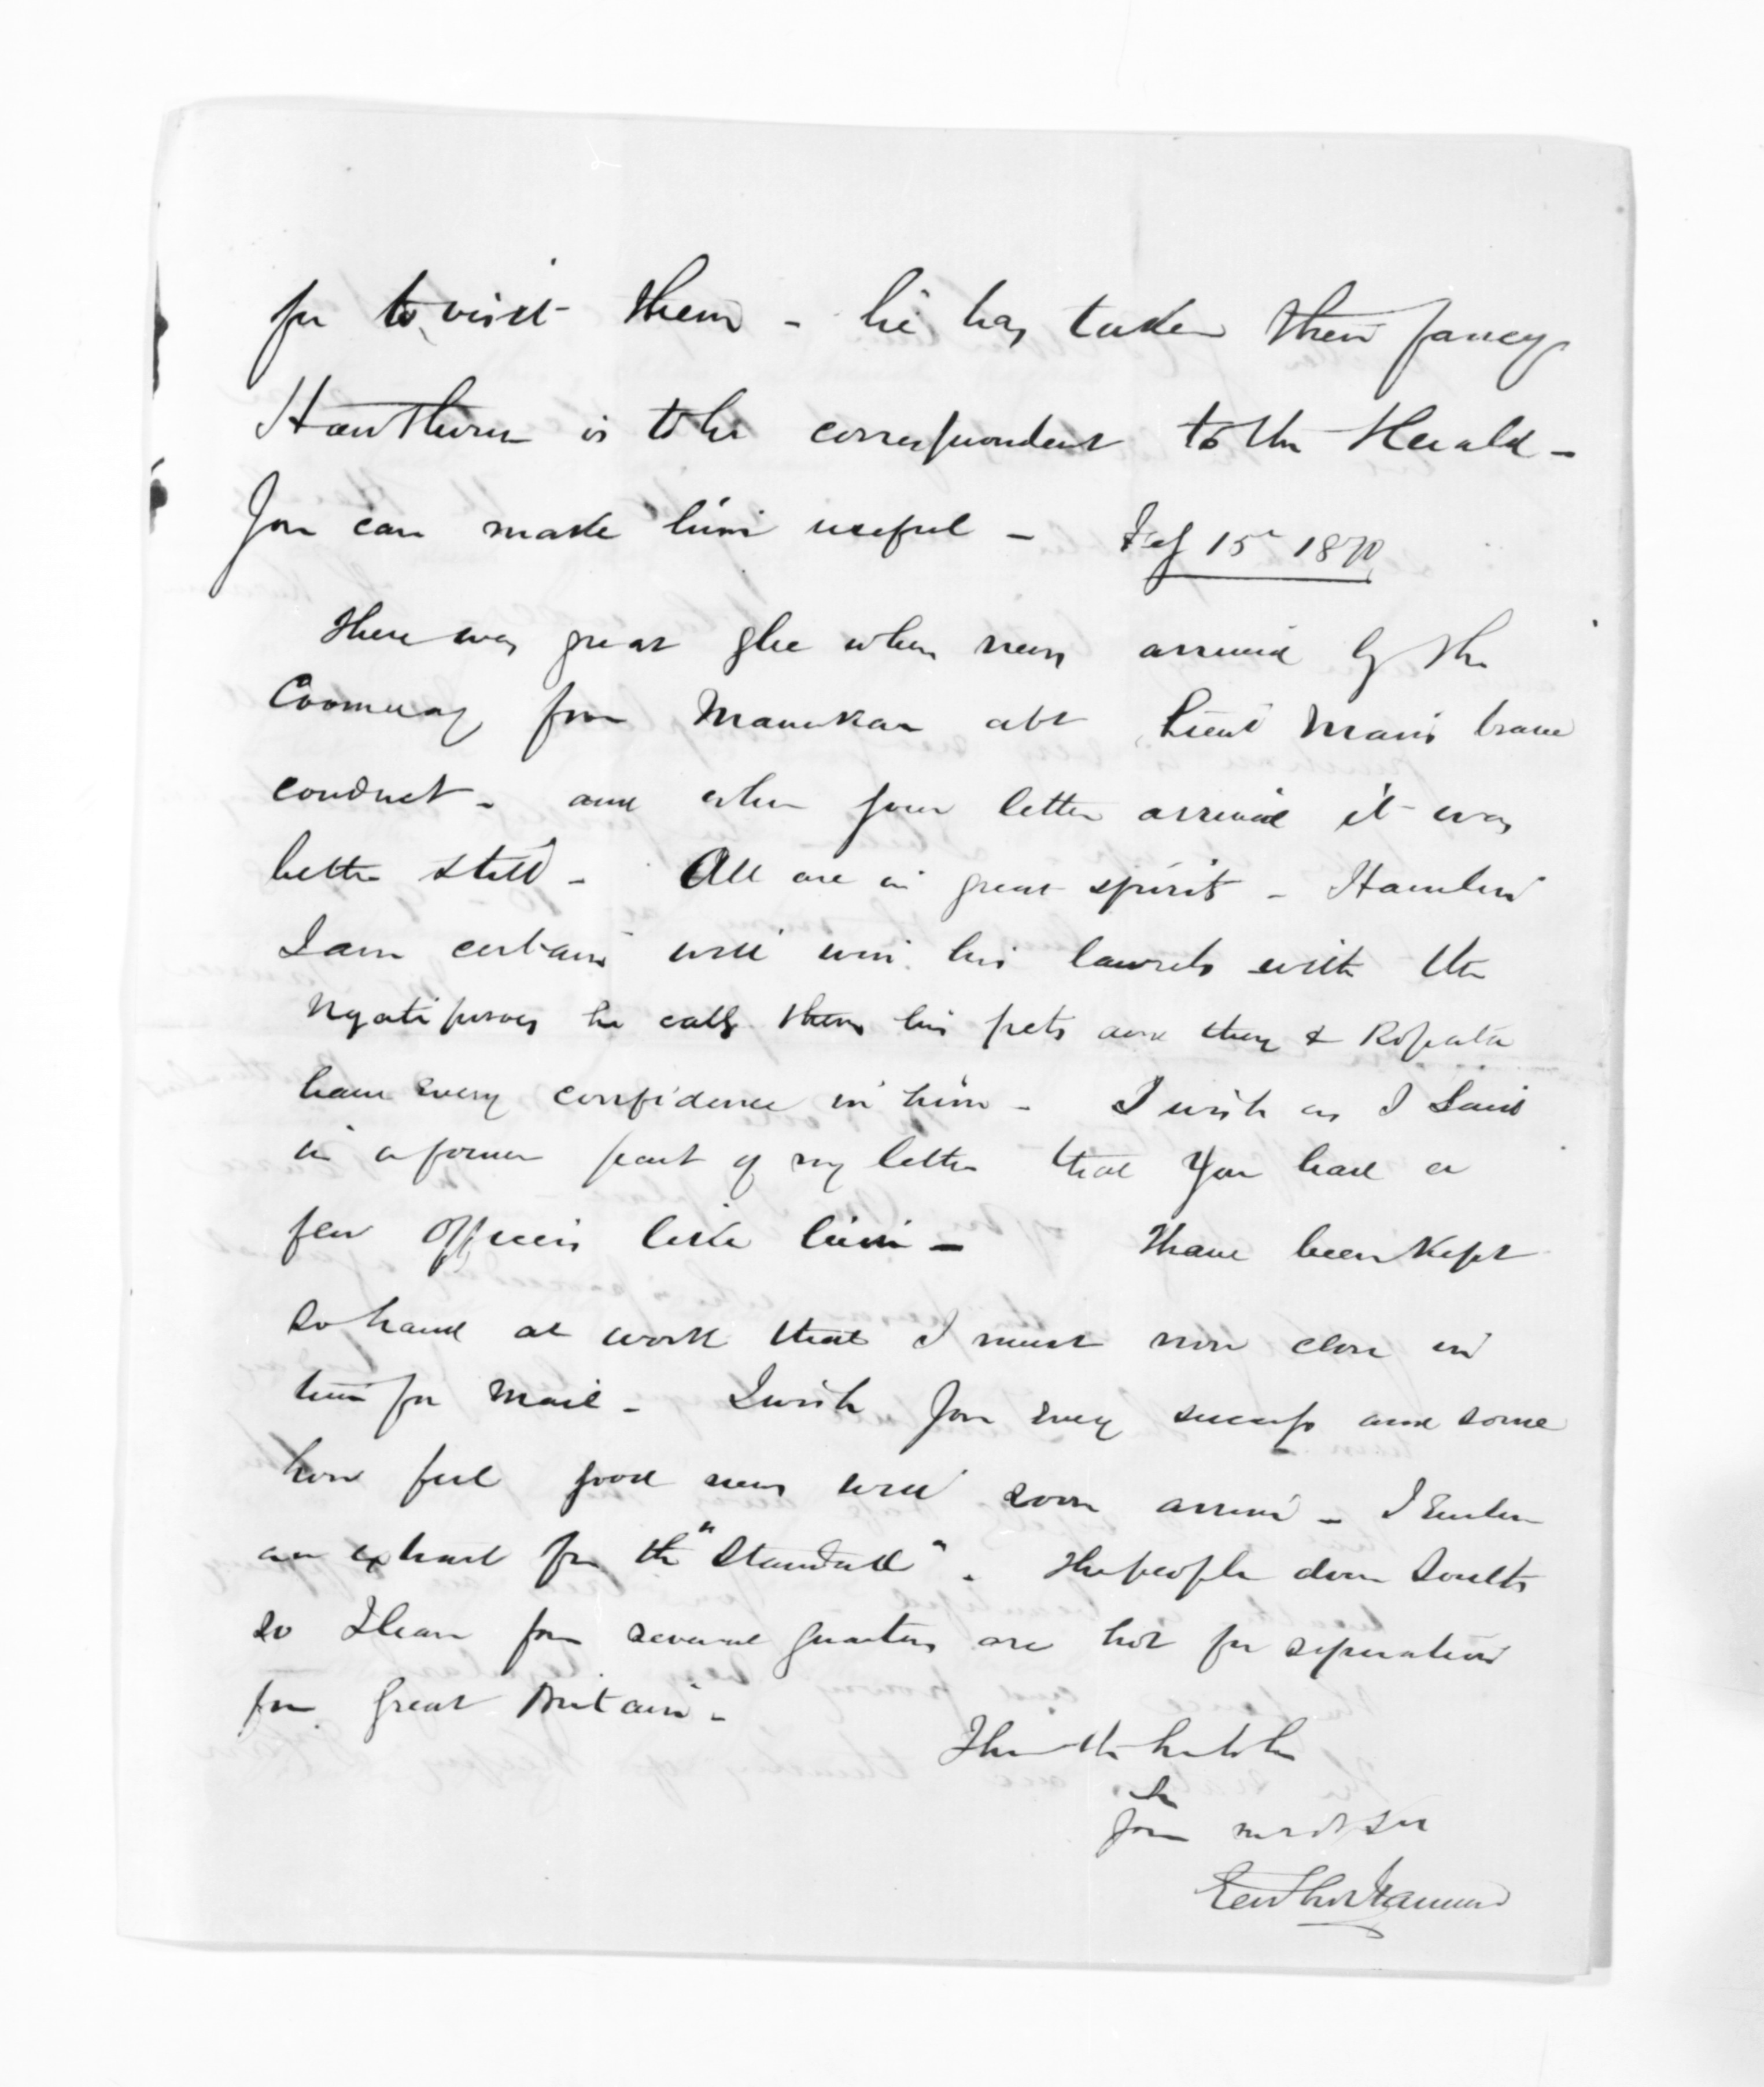 for to visit them - he has taken their fancy
Hawthorn is to be correspondent to the Herald -
You can make him useful - Feb 15th 1870
There was great glee when news arrived by the
from Manukau abt Lieut Mair's brave
conduct - and when your letter arrived it was
better still - All are in great spirits - Hamlin
I am certain will win his laurels with the
Ngatiporous he calls them his pets and they & Ropata
have every confidence in him - I wish as I said
in a former part of my letter that you had a
few Officers like him - I have been kept
so hard at work that I must now close in
time for mail - I wish you every success and some
how feel good news will soon arrive - I Enclose
an extract fm the "Standard". The people down South
so I hear from several quarters are hot for seperation
from Great Britain -
In haste
Yours